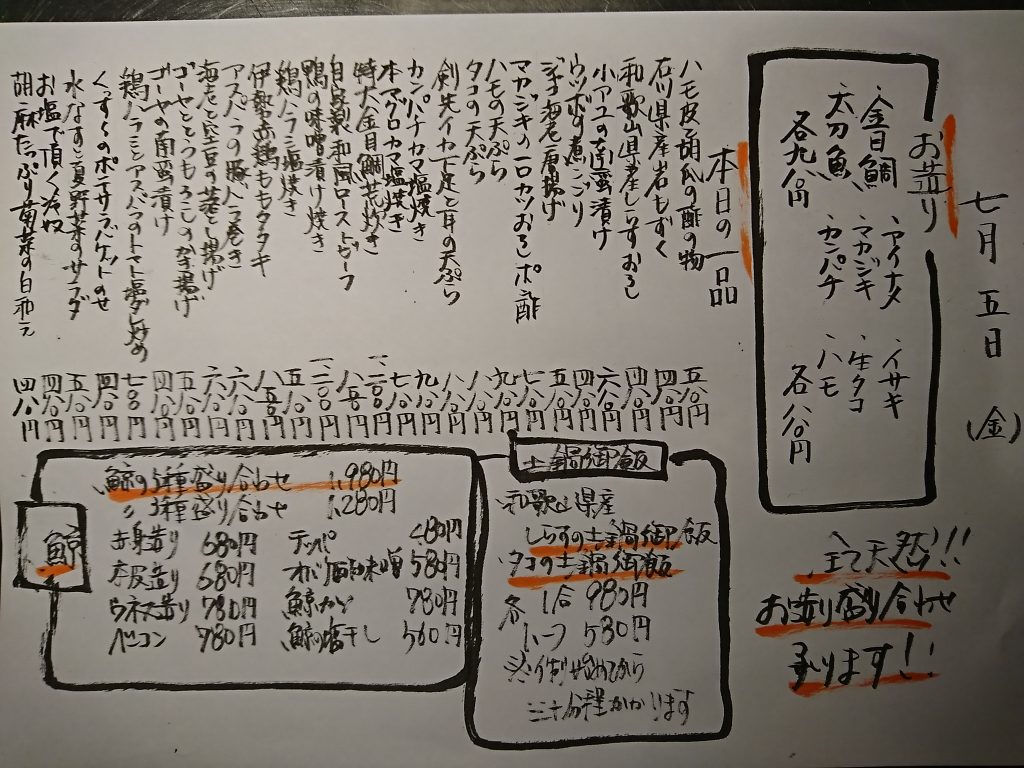 七月 五日 (金)
お造り
・金目鯛 ・アイナメ ・イサキ
・太刀魚 ・マカジキ ・生タコ
・カンパチ ・ハモ
各九八〇円 各八八〇円
全て天然!!
お造り盛り合わせ
承ります!!
本日の一品
ハモ皮と胡瓜の酢の物 五八〇円
石川県産岩もずく 四八〇円
和歌山県産しらすおろし 四八〇円
小アユの南蛮漬け 六八〇円
ウツボの煮こごり 五八〇円
ジャコ海老唐揚げ 七八〇円
マカジキの一口カツおろしポン酢 九八〇円
ハモの天ぷら
タコの天ぷら 八八〇円
剣先イカ下足と耳の天ぷら 八八〇円
カンパチカマ塩焼き 九八〇円
本マグロカマ塩焼き 七八〇円
特大金目鯛荒炊き 一、二〇〇円
自家製和風ローストビーフ 八五〇円
鴨の味噌漬け焼き 一、二〇〇円
鶏ハラミ塩焼き 五八〇円
伊勢赤鶏ももタタキ 八五〇円
アスパラの豚バラ巻き 六八〇円
海老と空豆の湯葉包み揚げ 六八〇円
ゴーヤととうもろこしのかき揚げ 五八〇円
ゴーヤの南蛮漬け 四八〇円
鶏ハラミとアスパラのトマト塩炒め 七八〇円
くんすくのポテサラバゲットのせ 四八〇円
水なすと夏野菜のサラダ 五八〇円
お塩で頂く冷奴 四八〇円
胡麻たっぷり菊菜の白和え 四八〇円
土鍋御飯
和歌山県産
しらすの土鍋御飯
タコの土鍋御飯
各 1合 980円
ハーフ 530円
三十分程かかります
鯨
鯨の5種盛り合わせ 1,980円
〃 3種盛り合わせ 1,280円
赤身造り 680円 テッパ 480円
本皮造り 680円 オバケ酢味噌 580円
ウネス造り 780円 鯨カツ 780円
ベーコン 780円 鯨の塩干し 560円